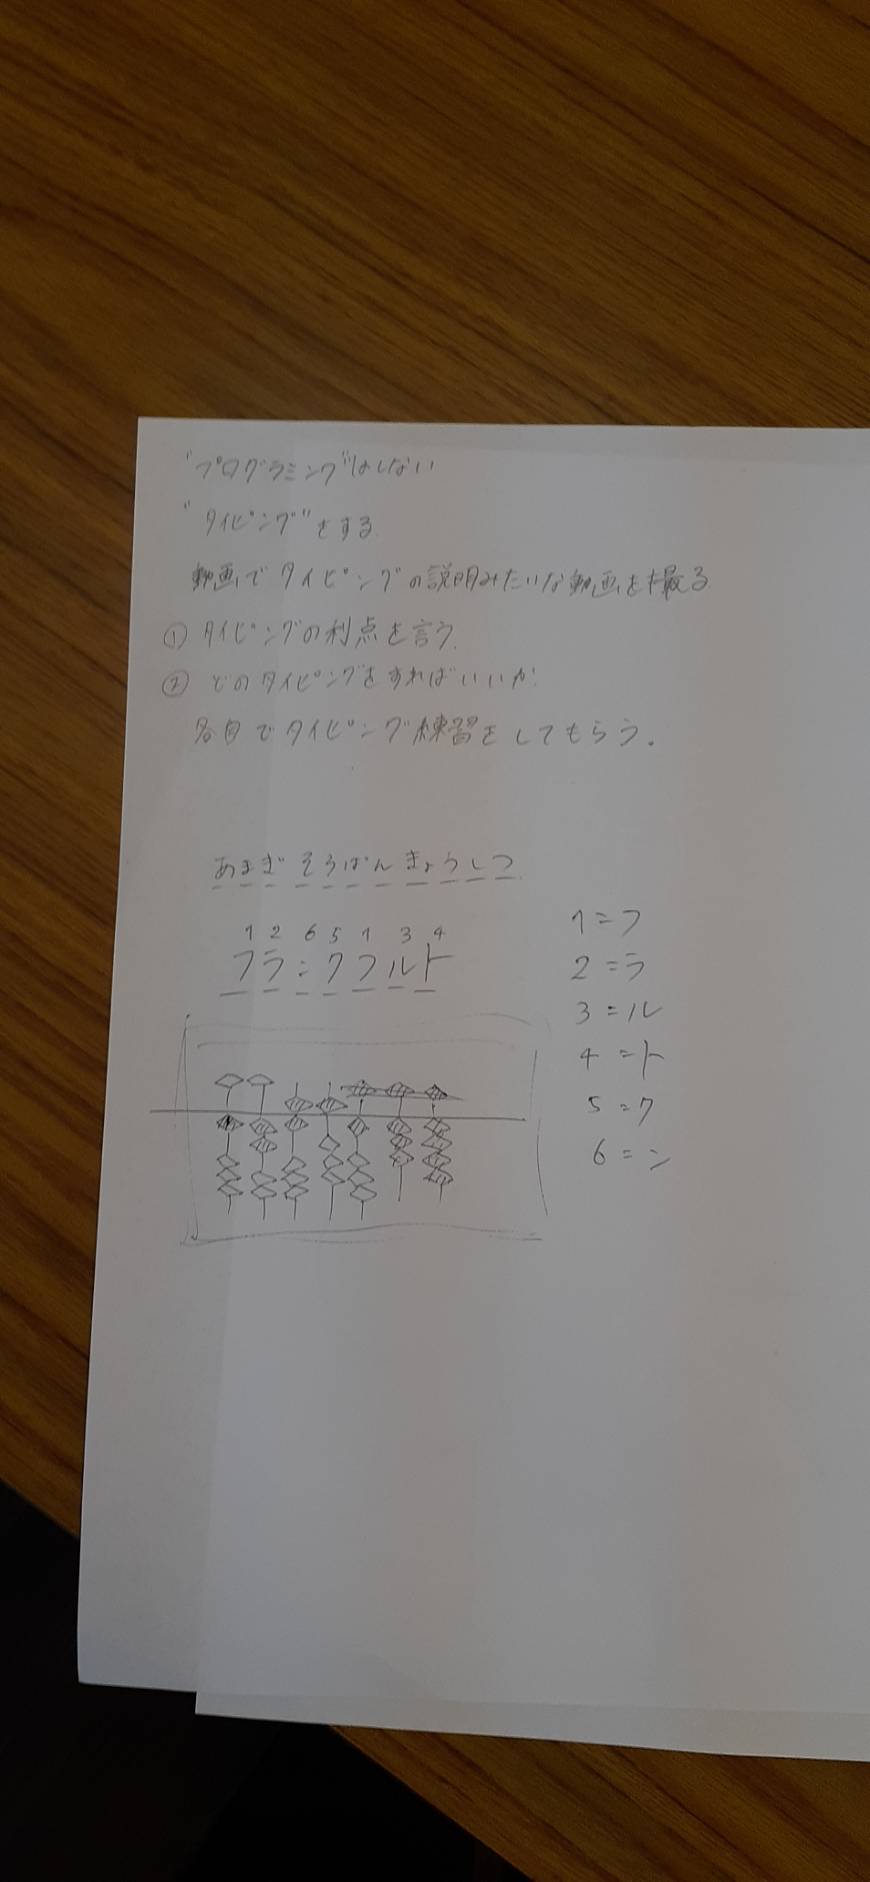 "プログラミング"はしない
"タイピング"をする
動画でタイピングの説明みたいな動画を撮る
① タイピングの利点を言う.
② どのタイピングをすればいいか.
各自でタイピング練習をしてもらう.
あまぎ そろばん きょうしつ
1 2 6 5 1 3 4
フランクフルト
1=フ
2=ラ
3=ル
4=ト
5=ク
6=ン